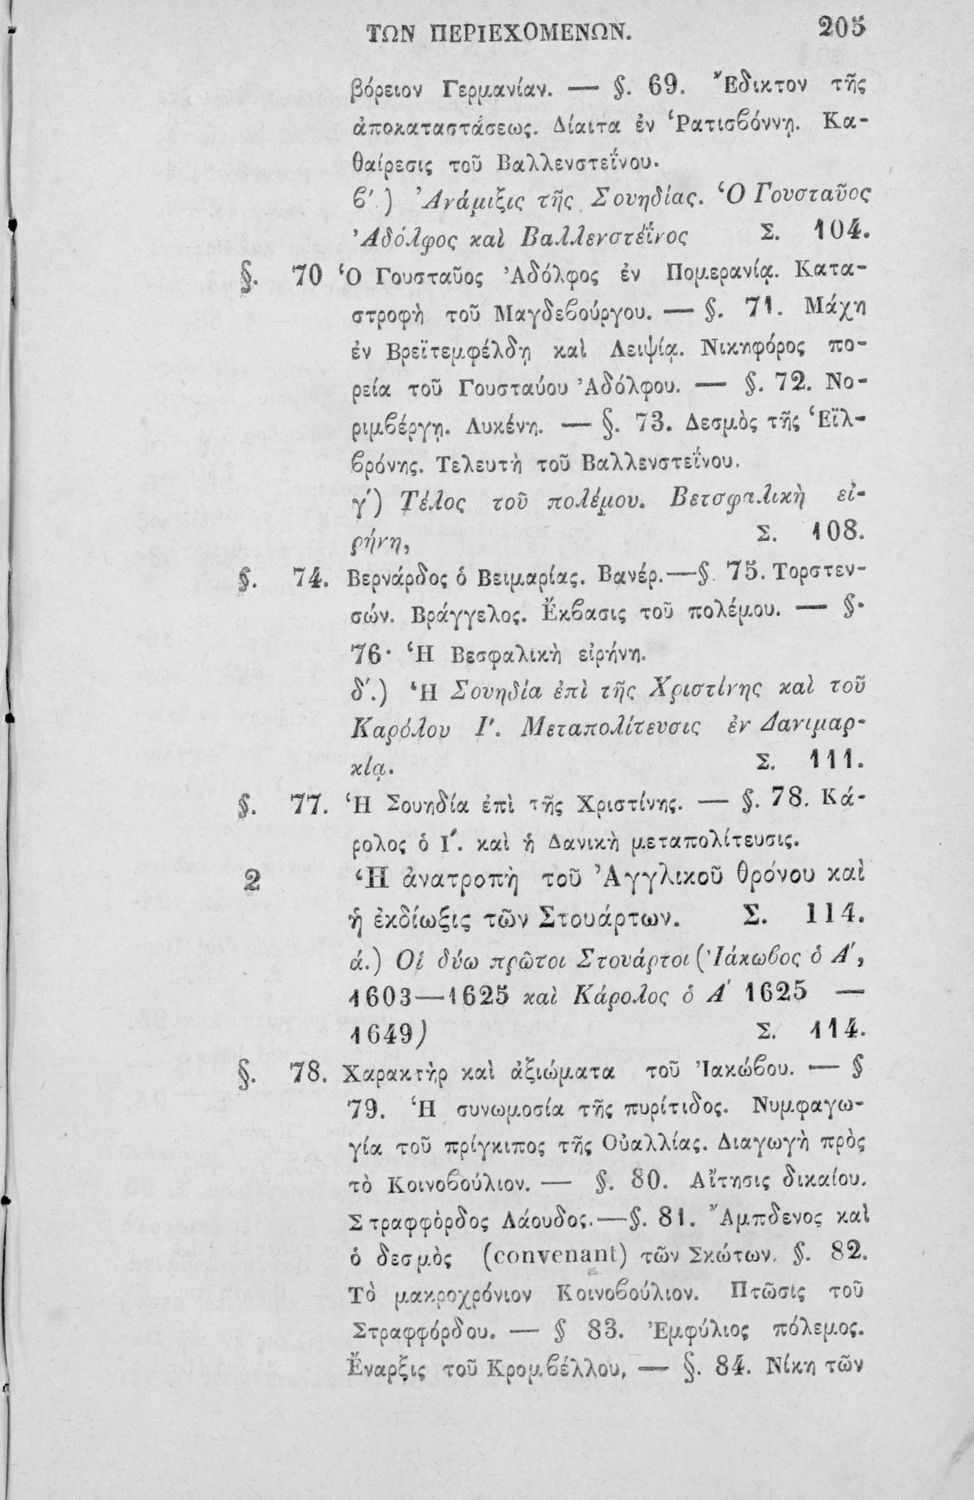 ΤΩΝ ΠΕΡΙΕΧΟΜΕΝΩΝ. 205
βόρειον Γερμανίαν. — §. 69. Ἔδικτον τῆς
ἀποκαταστάσεως. Δίαιτα ἐν Ῥατισϐόννῃ. Κα-
θαίρεσις τοῦ Βαλλενστεΐνου.
ϐ'.) Ἀνάμιξις τῆς Σουηδίας. Ὁ Γουσταῦος
Ἀδόλφος καὶ Βαλλενστέϊνος Σ. 104.
§. 70 Ὁ Γουσταῦος Ἀδόλφος ἐν Πομερανίᾳ. Κατα-
στροφὴ τοῦ Μαγδεϐούργου. — §. 71. Μάχη
ἐν Βρεϊτεμφέλδῃ καὶ Λειψίᾳ. Νικηφόρος πο-
ρεία τοῦ Γουσταύου Ἀδόλφου. — §. 72. Νο-
ριμϐέργῃ. Λυκένῃ. — §. 73. Δεσμὸς τῆς Ἑϊλ-
ϐρόνης. Τελευτὴ τοῦ Βαλλενστεΐνου.
γ') Τέλος τοῦ πολέμου. Βετσφαλικὴ εἰ-
ρήνη, Σ. 108.
§. 74. Βερνάρδος ὁ Βειμαρίας. Βανέρ.—§. 75. Τορστεν-
σών. Βράγγελος. Ἔκϐασις τοῦ πολέμου. — §·
76· Ἡ Βεσφαλικὴ εἰρήνη.
δ'.) Ἡ Σουηδία ἐπὶ τῆς Χριστίνης καὶ τοῦ
Καρόλου Ι'. Μεταπολίτευσις ἐν Δανιμαρ-
κίᾳ. Σ. 111.
§. 77. Ἡ Σουηδία ἐπὶ τῆς Χριστίνης. — §. 78. Κά-
ρολος ὁ Ι'. καὶ ἡ Δανικὴ μεταπολίτευσις.
2 Ἡ ἀνατροπὴ τοῦ Ἀγγλικοῦ θρόνου καὶ
ἡ ἐκδίωξις τῶν Στουάρτων. Σ. 114.
ά.) Οἱ δύω πρῶτοι Στουάρτοι (Ἰάκωϐος ὁ Α',
1603—1625 καὶ Κάρολος ὁ Α' 1625 —
1649) Σ. 114.
§. 78. Χαρακτὴρ καὶ ἀξιώματα τοῦ Ἰακώϐου. — §
79. Ἡ συνωμοσία τῆς πυρίτιδος. Νυμφαγω-
γία τοῦ πρίγκιπος τῆς Οὐαλλίας. Διαγωγὴ πρὸς
τὸ Κοινοϐούλιον. — §. 80. Αἴτησις δικαίου.
Στραφφὸρδος Λάουδος.—§. 81. Ἄμπδενος καὶ
ὁ δεσμὸς (convenant) τῶν Σκώτων. §. 82.
Τὸ μακροχρόνιον Κοινοϐούλιον. Πτῶσις τοῦ
Στραφφόρδου. — § 83. Ἐμφύλιος πόλεμος.
Ἔναρξις τοῦ Κρομϐέλλου, — §. 84. Νίκη τῶν